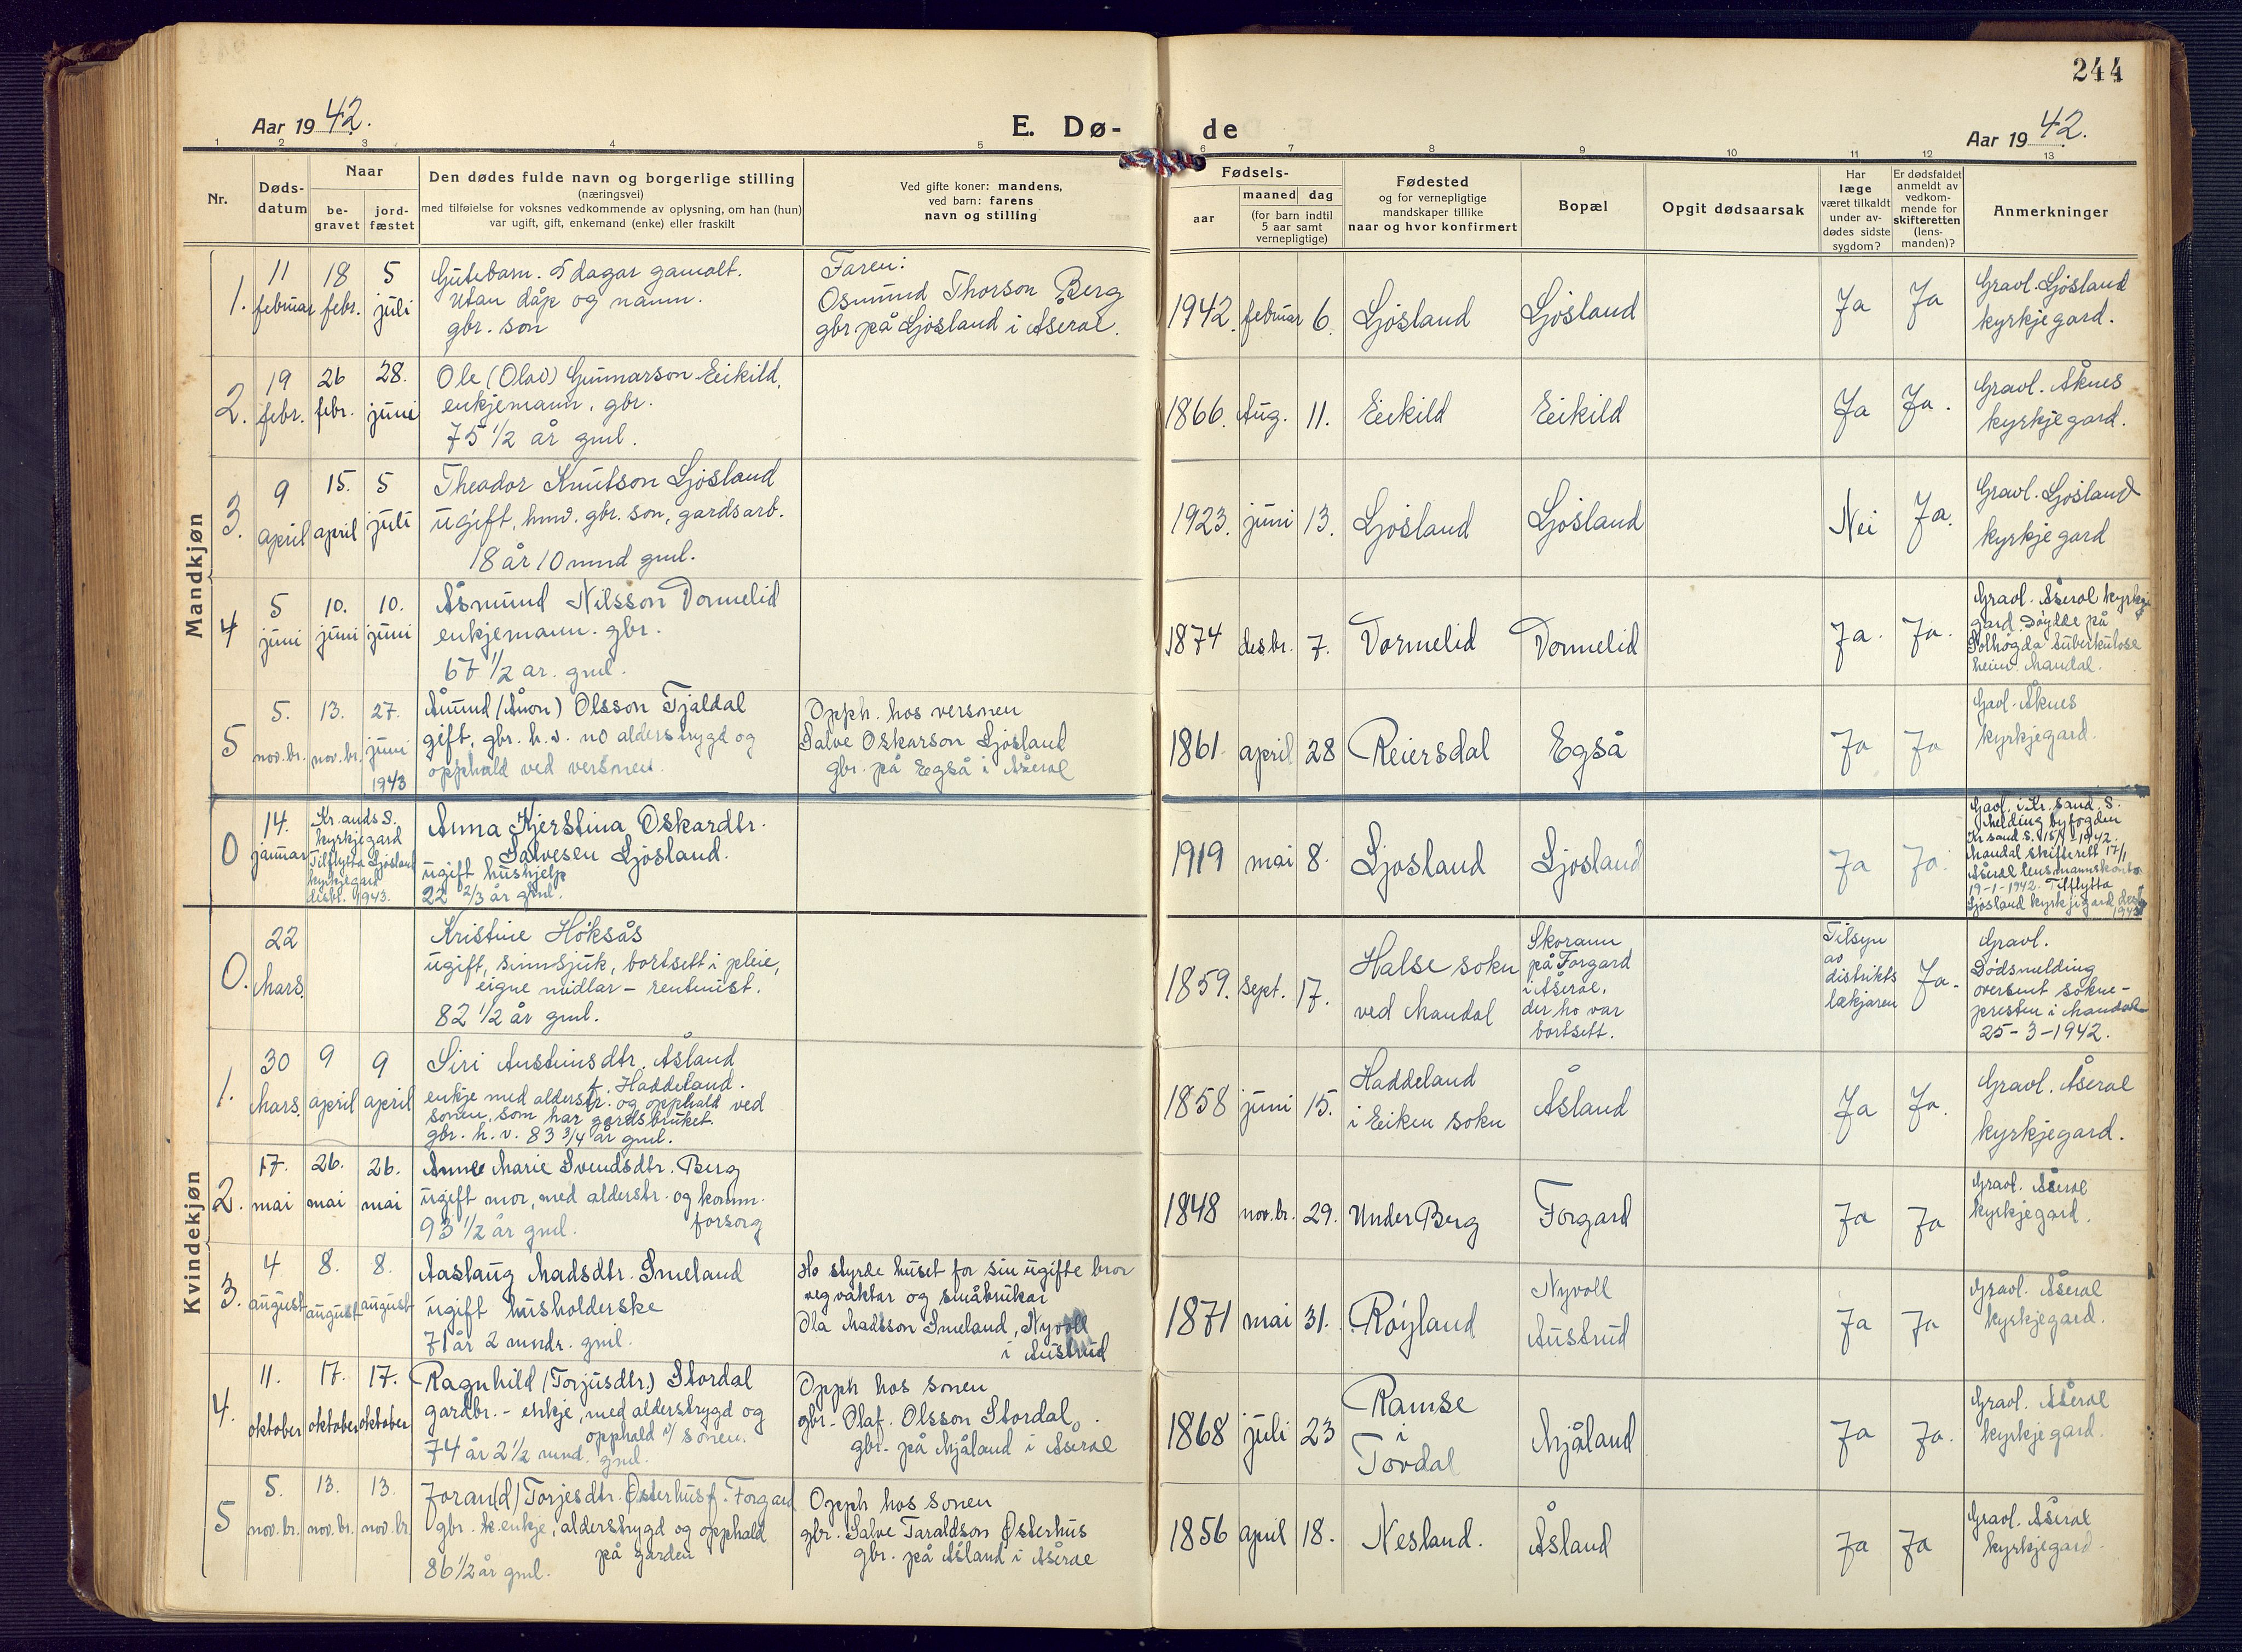 244
Aar 19 42.
E. Dø-
de
Aar 19 42.
1 2 3 4 5 6 7 8 9 10 11 12 13
Nr.
Døds-
datum
Naar
be-
gravet
jord-
fæstet
Den dødes fulde navn og borgerlige stilling
(næringsvei)
med tilføielse for voksnes vedkommende av oplysning, om han (hun)
var ugift, gift, enkemand (enke) eller fraskilt
Ved gifte koner: mandens,
ved barn: farens
navn og stilling
Fødsels-
aar
maaned dag
(for barn indtil
5 aar samt
vernepligtige)
Fødested
og for vernepligtige
mandskaper tillike
naar og hvor konfirmert
Bopæl
Opgit dødsaarsak
Har
læge
været tilkaldt
under av-
dødes sidste
sygdom?
Er dødsfaldet
anmeldt av
vedkom-
mende for
skifteretten
(lens-
manden)?
Anmerkninger
Mandkjøn
1.
11
februar
18
febr.
5
juli
Gutebarn. 5 dagar gamalt.
Utan dåp og namn.
gbr. son
Faren:
Osmund Thorson Berg
gbr på Ljosland i Åseral.
1942. februar 6.
Ljosland
Ljosland
Ja
Ja
Gravl. Ljosland
kyrkjegard.
2.
19
febr.
26
febr.
28.
juni
Ole (Olav) Gunnarson Eikild,
enkjemann, gbr.
75 1/2 år gml.
1866. Aug. 11.
Eikild
Eikild
Ja
Ja.
Gravl. Åknes
kyrkjegard.
3.
9
april
15.
april
5
juli
Theodor Knutson Ljosland
ugift, hmd. gbr. son, gardsarb.
18 år 10 mnd gml.
1923. juni 13.
Ljosland
Ljosland
Nei
Ja.
Gravl. Ljosland
kyrkjegard
4
5
juni
10.
juni
10.
juni
Åsmund Nilsson Dormelid
enkjemann. gbr.
67 1/2 år. gml.
1874 desbr. 7.
Dormelid
Dormelid
Ja.
Ja.
Gravl. Åseral kyrkje
gard. Døydde på
Solhøgda tuberkulose
heim. Mandal.
5
5.
nov.br.
13.
nov.br.
27.
juni
1943
Åmund (Ånon) Olsson Tjaldal
gift, gbr. h.v. no alderstrygd og
opphald ved versonen.
Opph. hos versonen
Salve Oskarson Ljosland
gbr. på Egså i Åseral
1861. april 28
Reiersdal
Egså
Ja
Ja
Gavl. Åknes
kyrkjegard.
Kvindekjøn
0
14.
januar
Kr.ands S.
kyrkjegard
Tilflytta Ljosland
kyrkjegard
desbr. 1943.
Anna Kjerstina Oskardtr.
Salvesen Ljosland.
ugift hushjelp
22 2/3 år gml.
1919 mai 8.
Ljosland
Ljosland
Ja
Ja.
Gavl. i Kr. sand. S.
Melding byfogden
Kr sand S. 15/1-1942.
Mandal skifterett 17/1
Åseral lensmannskontor
19-1-1942. Tilflytta
Ljosland kyrkjegard des.
1943
0.
22
Mars.
Kristine Höksås
ugift, sinnsjuk, bortsett i pleie,
eigne midlar - rentenist.
82 1/2 år gml.
1859. sept. 17.
Halse sokn
ved Mandal
Skorann
på Forgard
i Åseral,
der ho var
bortsett.
Tilsyn
av
distrikts
lækjaren
Ja.
Gravl.
Dødsmelding
oversent sokne-
presten i Mandal
25-3-1942.
1.
30
Mars.
9
april
9
april
Siri Austinsdtr. Åsland
f. Haddeland.
enkje med alderstr. og opphald ved
sonen, som har gardsbruket.
gbr. h.v. 83 3/4 år gml.
1858 juni 15.
Haddeland
i Eiken sokn
Åsland
Ja
Ja.
Gravl. Åseral
kyrkjegard.
2.
17.
mai
26.
mai
26.
mai
Anne Marie Svendsdtr. Berg
ugift mor, med alderstr. og komm.
forsorg
93 1/2 år gml.
1848 nov.br. 29.
Under Berg
Forgard
Ja
Ja
Gravl. Åseral
kyrkjegard.
3.
4
august
8.
august
8.
august
Aaslaug Madsdtr. Smeland
ugift husholderske
71 år 2 mndr. gml.
Ho styrde huset for sin ugifte bror
vegvaktar og småbrukar
Ola Madsson Smeland, Nyvoll
i Austrud
1871 mai 31.
Røyland
Nyvoll
Austrud
Ja
Ja
Gravl. Åseral
kyrkjegard.
4.
11.
oktober
17.
oktober
17.
oktober
Ragnhild (Torjusdtr.) Stordal
gardbr. - enkje, med alderstrygd og
opphald i/ sonen.
74 år 2 1/2 mnd. gml.
Opph hos sonen
gbr. Olaf. Olsson Stordal.
gbr. på Mjåland i Åseral
1868 juli 23
Ramse
i
Tovdal
Mjåland
Ja
Ja.
Gravl. Åseral
kyrkjegard.
5
5.
nov.br.
13.
nov.br.
13.
nov.br.
Joran(d) Torjesdtr. Østerhus f. Forgard
gbr. k.enkje, alderstrygd og opphald
på garden
86 1/2 år gml.
Opph hos sonen
gbr. Salve Taraldson Østerhus
gbr. på Åsland i Åseral
1856 april 18.
Nesland.
Åsland
Ja
Ja
Gravl. Åseral
kyrkjegard.